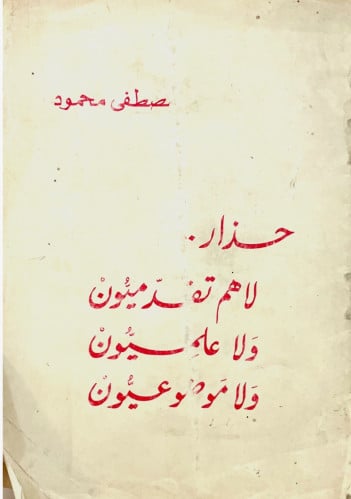 مصطفى محمود
حذار.
لا هم تقدّميُّونْ
وَلا علميُّونْ
وَلا مَوضوعيُّونْ